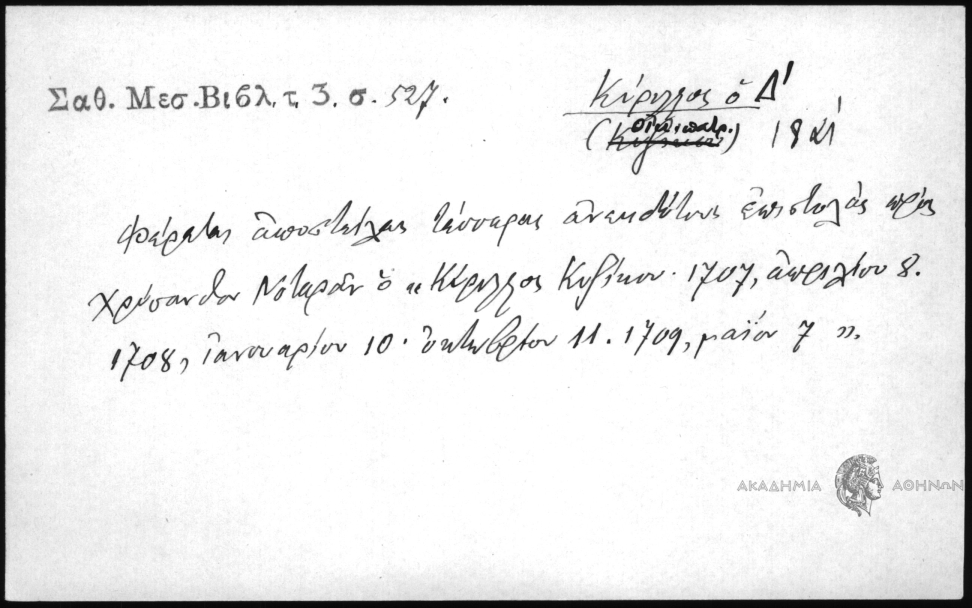 Σαθ. Μεσ. Βιβλ. τ. 3. σ. 527.
Κύριλλος ὁ Δ'
(οἰκ. πατρ.)
Φέρεται ἀποστείλας τέσσαρας ἀνεκδότους ἐπιστολὰς πρὸς
Χρύσανθον Νοταρᾶν ὁ «Κύριλλος Κυζίκου. 1707, ἀπριλίου 8.
1708, ἰανουαρίου 10. ὀκτωβρίου 11. 1709, μαΐου 7».
ΑΚΑΔΗΜΙΑ ΑΘΗΝΩΝ